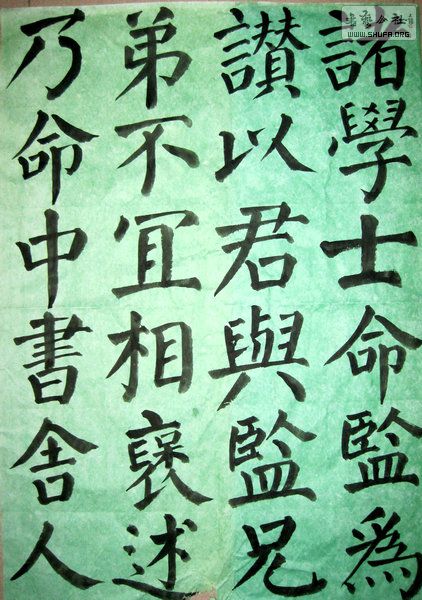 諸學士命監為
讃以君與監兄
弟不宜相褒述
乃命中書舍人
書藝公社
WWW.SHUFA.ORG